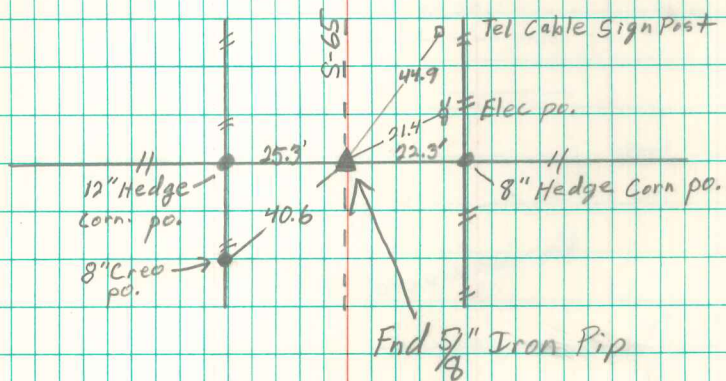 S-65
Tel Cable Sign Post
44.9
Elec po.
21.4
25.3'
22.3'
12" Hedge
Corn. po.
8" Hedge Corn po.
40.6
8" Creo
po.
Fnd 5/8" Iron Pip